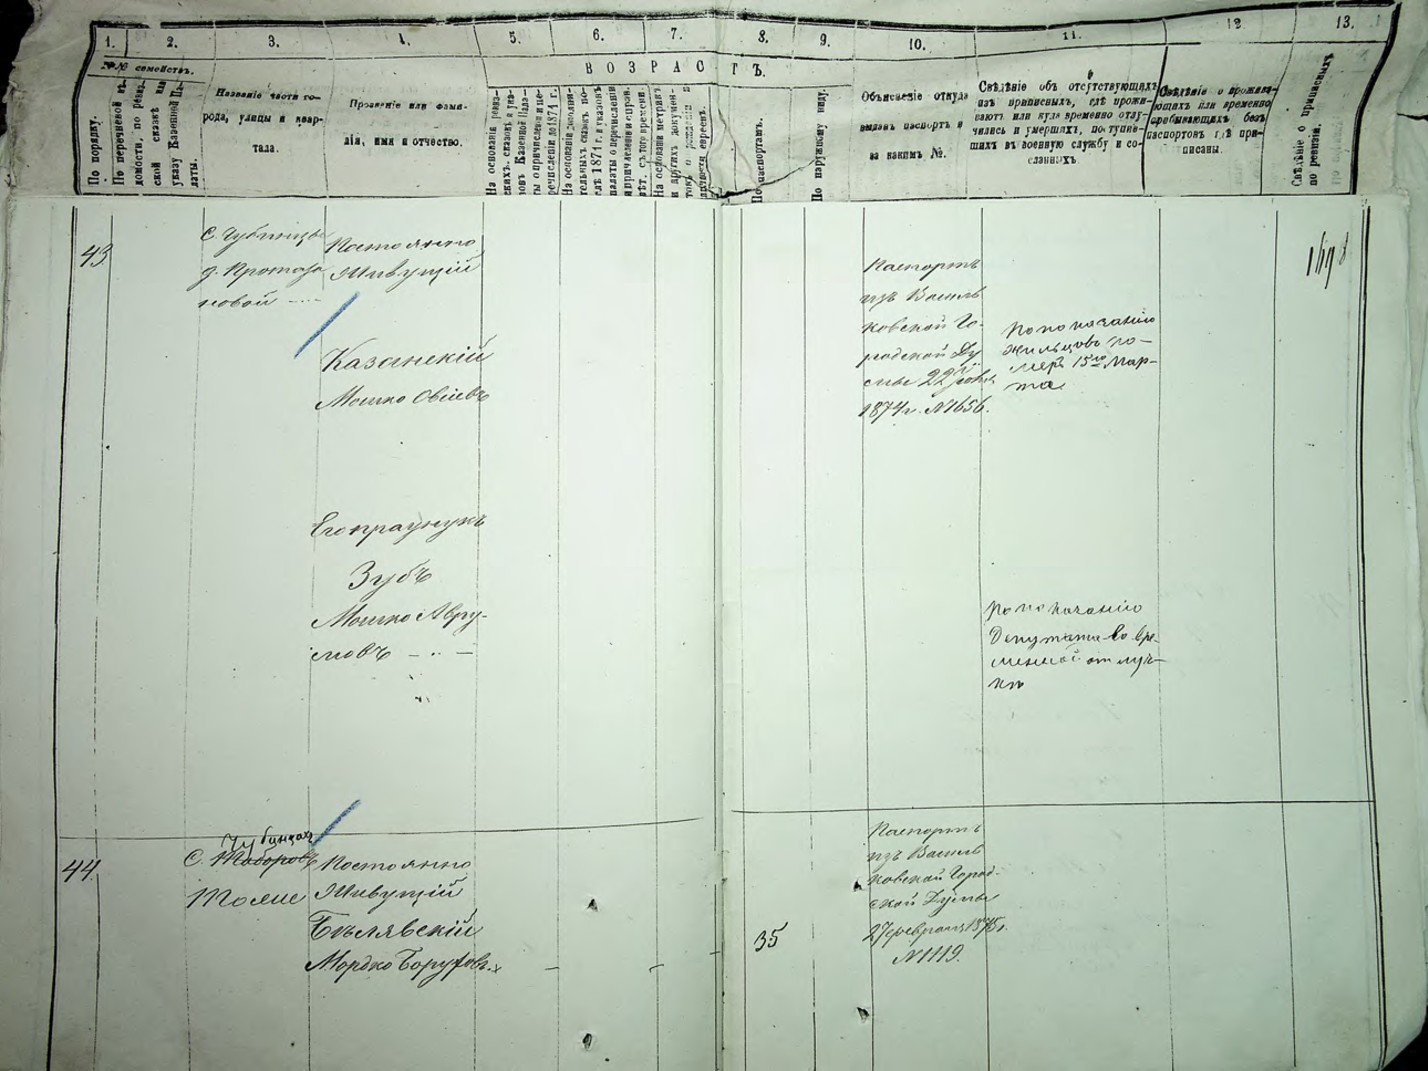 1. 2. 3. 4. 5. 6. 7. 8. 9. 10. 11. 12 13.
№№ семействъ.
ВОЗРАСТЪ.
По порядку.
По перечневой вѣ-
домости, по ревиз-
ской сказкѣ или
указу Казенной Па-
латы.
Названіе части го-
рода, улицы и квар-
тала.
Прозваніе или фами-
лія, имя и отчество.
На основаніи ревиз-
скихъ сказокъ и ука-
зовъ Казенной Пала-
ты о причисленіи и пе-
речисленіи до 1871 г.
На основаніи дополни-
тельныхъ сказокъ по-
слѣ 1871 г. и указовъ
палаты о перечисленіи
и причисленіи
На основаніи метрикъ
и другихъ докумен-
товъ о рожденіи и
евреевъ.
По паспортамъ.
По наружному виду.
Объясненіе откуда
выданъ паспортъ и
за какимъ №.
Свѣдѣніе объ отсутствующихъ
изъ приписныхъ, гдѣ прожи-
ваютъ или куда временно отлу-
чились и умершихъ, поступив-
шихъ въ военную службу и со-
сланныхъ.
Свѣдѣніе о прожива-
ющихъ или временно
пребывающихъ безъ
паспортовъ гдѣ при-
писаны.
Свѣдѣніе о приписныхъ
по ревизіи.
43
с. Чубинцы
д. Протаза
новой
Постоянно
Живущій
Казанскій
Мошко Овсіевъ
Паспортъ
изъ Василь
ковской Го-
родской Ду
мы 22
1874 г. №1656.
По показанію
жильцовъ по-
меръ 15го Мар-
та
Его праунукъ
Зубъ
Мошко Авру-
мовъ
По показанію
Депутата во вре-
менной отлуч-
кѣ
44
Чубинцах
с.
Постоянно
Живущій
Бѣлявскій
Мордко Боруховъ
35
Паспортъ
изъ Василь
ковской Город-
ской Думы
27 февраля 1875 г.
№1119.